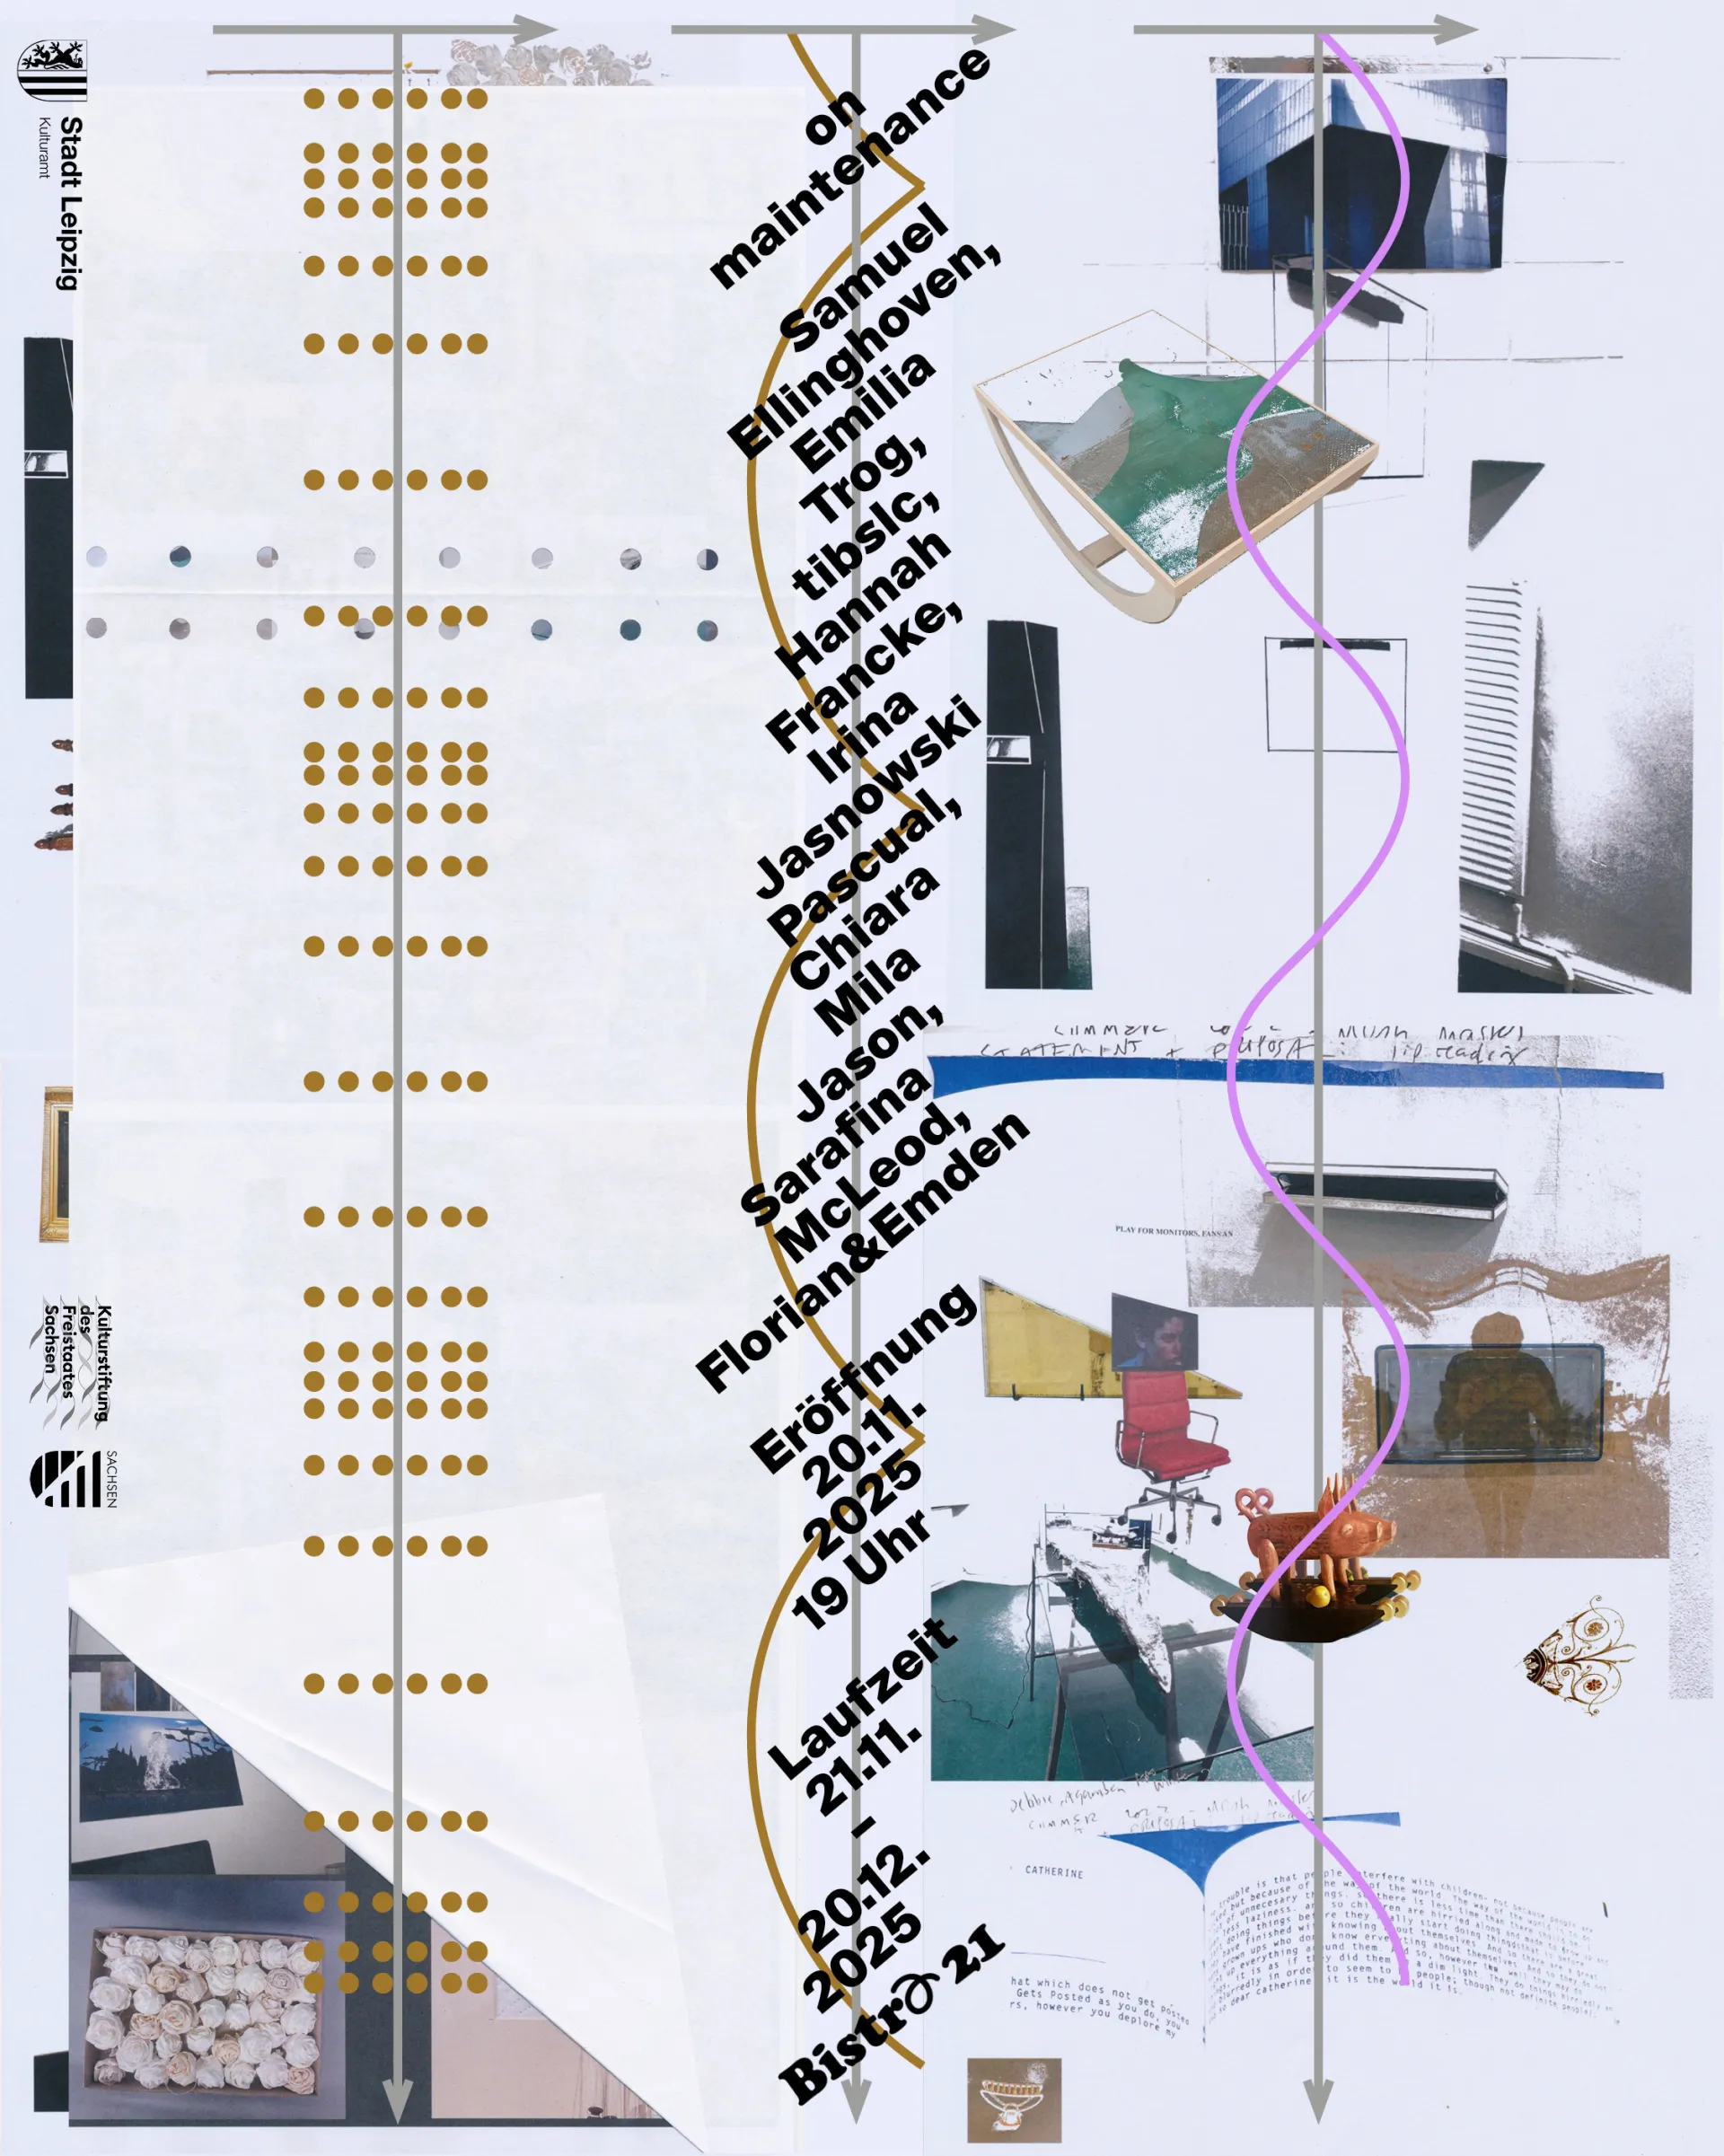 on
maintenance
Samuel
Ellinghoven,
Emilia
Trog,
tibslc,
Hannah
Francke,
Irina
Jasnowski
Pascual,
Chiara
Mila
Jason,
Sarafina
McLeod,
Florian&Emden
Eröffnung
20.11.
2025
19 Uhr
Laufzeit
21.11.
–
20.12.
2025
Bistro 21
Stadt Leipzig
Kulturamt
Kulturstiftung
des
Freistaates
Sachsen
SACHSEN
STATEMENT +
lip reading
PLAY FOR MONITORS,
CATHERINE
hat which does not get postes
Gets Posted as you do, you
rs, however you deplore my